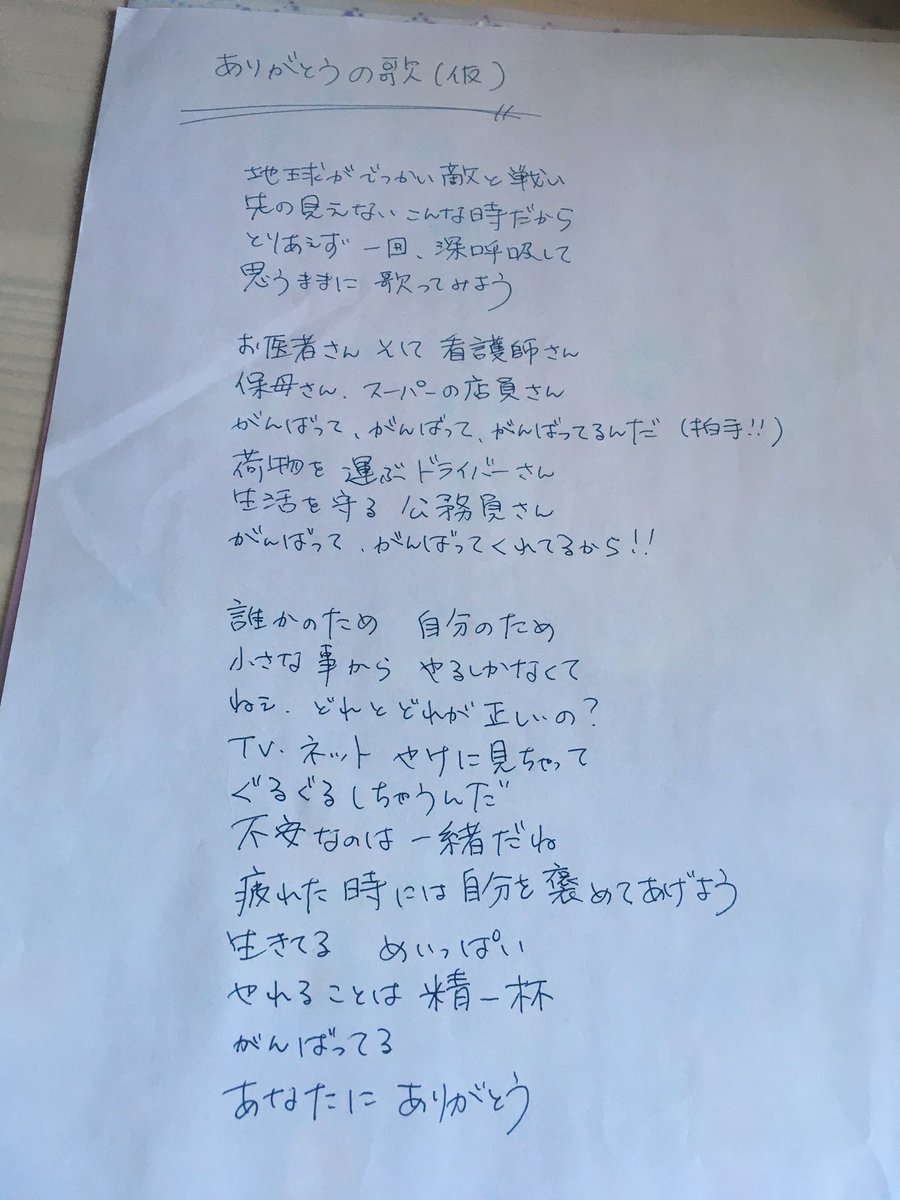 ありがとうの歌(仮)
地球がでっかい敵と戦い
先の見えないこんな時だから
とりあえず一回、深呼吸して
思うままに 歌ってみよう
お医者さん そして 看護師さん
保母さん、スーパーの店員さん
がんばって、がんばって、がんばってるんだ (拍手!!)
荷物を 運ぶ ドライバーさん
生活を守る 公務員さん
がんばって、がんばってくれてるから!!
誰かのため 自分のため
小さな事から やるしかなくて
ねえ、どれとどれが正しいの?
TV・ネット やけに見ちゃって
ぐるぐるしちゃうんだ
不安なのは 一緒だね
疲れた時には自分を褒めてあげよう
生きてる めいっぱい
やれることは 精一杯
がんばってる
あなたに ありがとう